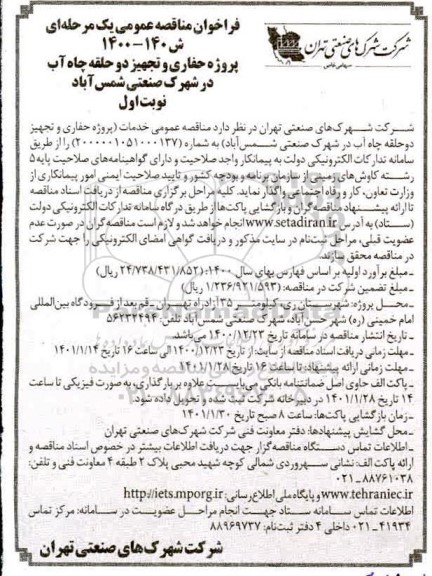 فراخوان مناقصه عمومی یک مرحله‌ای
ش ۱۴۰-۱۴۰۰
پروژه حفاری و تجهیز دو حلقه چاه آب
در شهرک صنعتی شمس‌آباد
نوبت اول
شرکت شهرک‌های صنعتی تهران
سهامی خاص
شرکت شهرک‌های صنعتی تهران در نظر دارد مناقصه عمومی خدمات (پروژه حفاری و تجهیز
دوحلقه چاه آب در شهرک صنعتی شمس‌آباد) به شماره (۲۰۰۰۰۰۱۰۵۱۰۰۰۱۳۷) را از طریق
سامانه تدارکات الکترونیکی دولت به پیمانکار واجد صلاحیت و دارای گواهینامه‌های صلاحیت پایه ۵
رشته کاوش‌های زمینی از سازمان برنامه و بودجه کشور و تایید صلاحیت ایمنی امور پیمانکاری از
وزارت تعاون، کار و رفاه اجتماعی واگذار نماید. کلیه مراحل برگزاری مناقصه از دریافت اسناد مناقصه
تا ارائه پیشنهاد مناقصه‌گران و بازگشایی پاکت‌ها از طریق درگاه سامانه تدارکات الکترونیکی دولت
(ستاد) به آدرس www.setadiran.ir انجام خواهد شد و لازم است مناقصه‌گران در صورت عدم
عضویت قبلی، مراحل ثبت‌نام در سایت مذکور و دریافت گواهی امضای الکترونیکی را جهت شرکت
در مناقصه محقق سازند.
- مبلغ برآورد اولیه بر اساس فهارس بهای سال ۱۴۰۰: (۲۴/۷۳۸/۴۳۱/۸۵۲ ریال)
- مبلغ تضمین شرکت در مناقصه: (۱/۲۳۶/۹۲۱/۵۹۳ ریال)
- محل پروژه: شهرستان ری، کیلومتر ۳۵ آزادراه تهران - قم بعد از فرودگاه بین‌المللی
امام خمینی (ره) شهر حسن‌آباد، شهرک صنعتی شمس‌آباد تلفن: ۵۶۲۳۳۴۹۴
- تاریخ انتشار مناقصه در سامانه تاریخ ۱۴۰۰/۱۲/۲۳ می‌باشد.
- مهلت زمانی دریافت اسناد مناقصه از سایت: از تاریخ ۱۴۰۰/۱۲/۲۳ الی ساعت ۱۶ تاریخ ۱۴۰۱/۱/۱۴
- مهلت زمانی ارائه پیشنهاد: تا ساعت ۱۶ تاریخ ۱۴۰۱/۱/۲۸
- پاکت الف حاوی اصل ضمانتنامه بانکی می‌بایست علاوه بر بارگذاری، به صورت فیزیکی تا ساعت
۱۴ تاریخ ۱۴۰۱/۱/۲۸ در دبیرخانه شرکت ثبت شده و تحویل داده شود.
- زمان بازگشایی پاکت‌ها: ساعت ۸ صبح تاریخ ۱۴۰۱/۱/۳۰
- محل گشایش پیشنهادها: دفتر معاونت فنی شرکت شهرک‌های صنعتی تهران
- اطلاعات تماس دستگاه مناقصه‌گزار جهت دریافت اطلاعات بیشتر در خصوص اسناد مناقصه و
ارائه پاکت الف: نشانی سهروردی شمالی کوچه شهید محبی پلاک ۲ طبقه ۴ معاونت فنی و تلفن:
۸۸۷۶۱۰۳۸ - ۰۲۱
www.tehraniec.ir و پایگاه ملی اطلاع‌رسانی: http://iets.mporg.ir
اطلاعات تماس سامانه ستاد جهت انجام مراحل عضویت در سامانه: مرکز تماس
۴۱۹۳۴ - ۰۲۱ داخلی ۴ دفتر ثبت‌نام: ۸۸۹۶۹۷۳۷
شرکت شهرک‌های صنعتی تهران